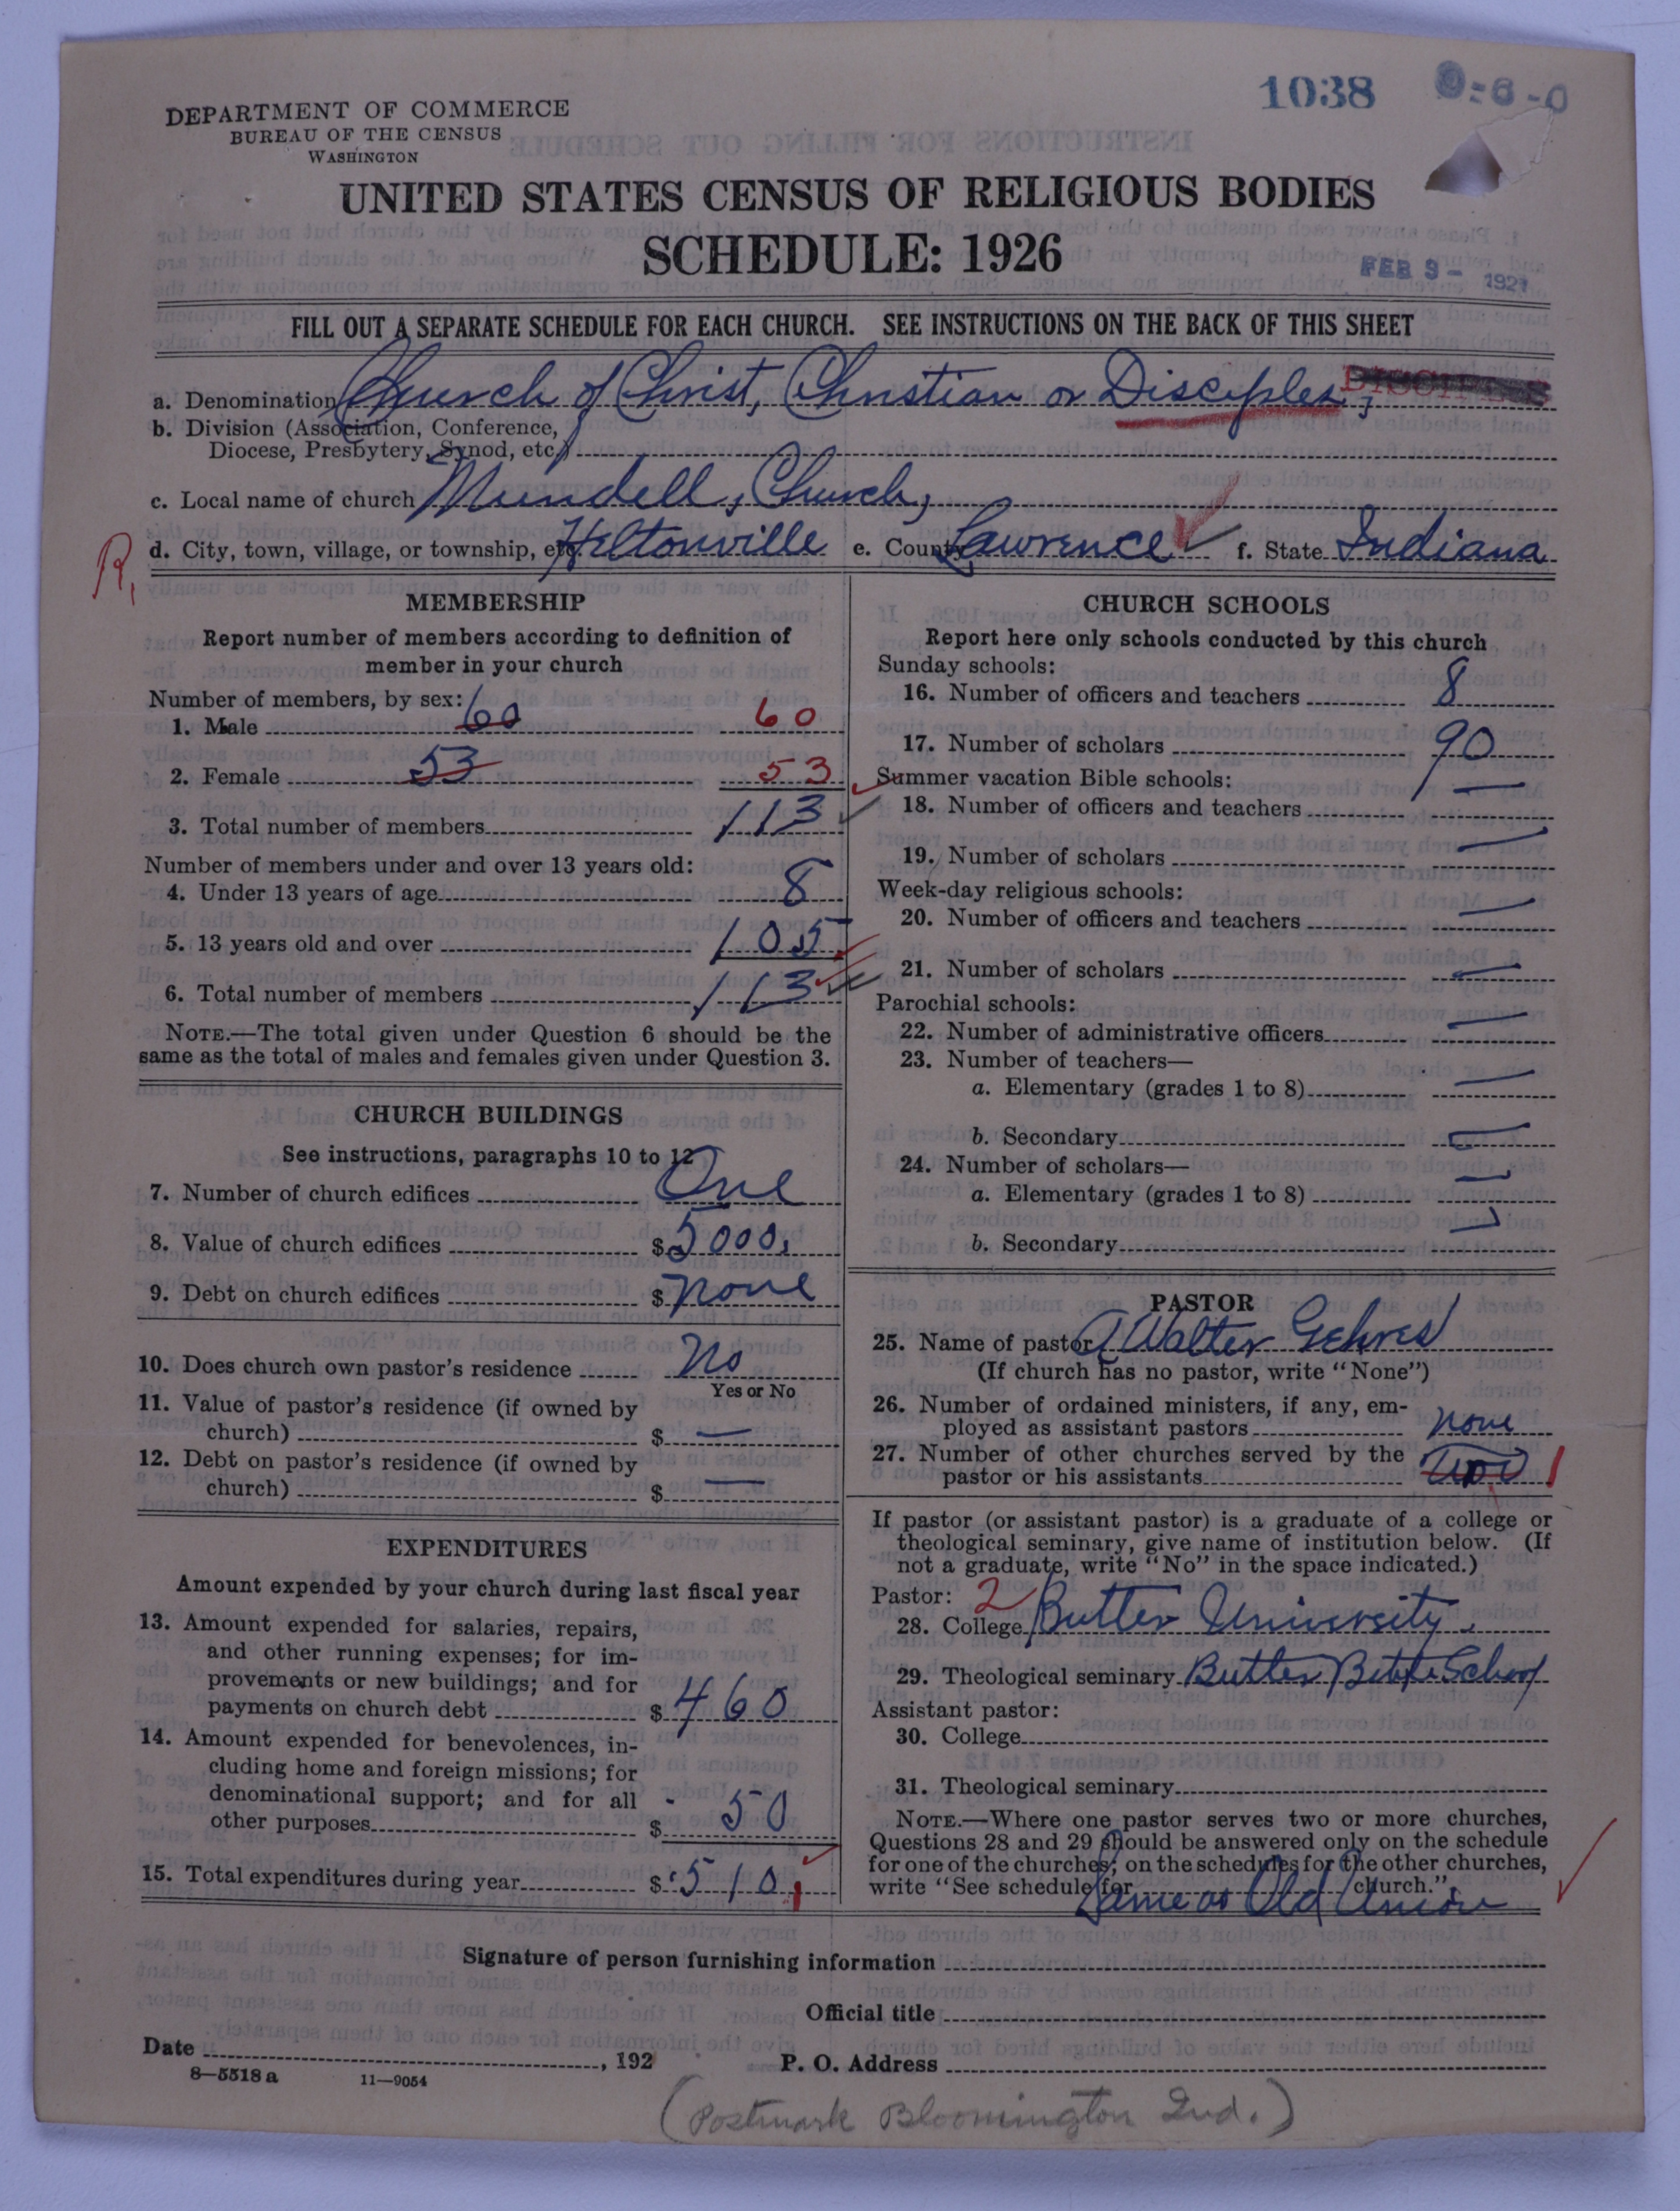 1038
DEPARTMENT OF COMMERCE
BUREAU OF THE CENSUS
WASHINGTON
UNITED STATES CENSUS OF RELIGIOUS BODIES
SCHEDULE: 1926
FEB 9 - 1927
FILL OUT A SEPARATE SCHEDULE FOR EACH CHURCH. SEE INSTRUCTIONS ON THE BACK OF THIS SHEET
a. Denomination Church of Christ, Christian or Disciples, DISCIPLES
b. Division (Association, Conference,
Diocese, Presbytery, Synod, etc.)
c. Local name of church Mundell, Church,
R, d. City, town, village, or township, etc. Heltonville e. County Lawrence f. State Indiana
MEMBERSHIP
Report number of members according to definition of
member in your church
Number of members, by sex:
1. Male 60 60
2. Female 53 53
3. Total number of members 113
Number of members under and over 13 years old:
4. Under 13 years of age 8
5. 13 years old and over 105
6. Total number of members 113
NOTE.—The total given under Question 6 should be the
same as the total of males and females given under Question 3.
CHURCH BUILDINGS
See instructions, paragraphs 10 to 12
7. Number of church edifices One
8. Value of church edifices $5000.
9. Debt on church edifices $ none
10. Does church own pastor's residence No
Yes or No
11. Value of pastor's residence (if owned by
church) $ —
12. Debt on pastor's residence (if owned by
church) $ —
EXPENDITURES
Amount expended by your church during last fiscal year
13. Amount expended for salaries, repairs,
and other running expenses; for im-
provements or new buildings; and for
payments on church debt $ 460
14. Amount expended for benevolences, in-
cluding home and foreign missions; for
denominational support; and for all
other purposes $ 50
15. Total expenditures during year $ 510
CHURCH SCHOOLS
Report here only schools conducted by this church
Sunday schools:
16. Number of officers and teachers 8
17. Number of scholars 90
Summer vacation Bible schools:
18. Number of officers and teachers —
19. Number of scholars —
Week-day religious schools:
20. Number of officers and teachers —
21. Number of scholars —
Parochial schools:
22. Number of administrative officers —
23. Number of teachers—
a. Elementary (grades 1 to 8) —
b. Secondary —
24. Number of scholars—
a. Elementary (grades 1 to 8) —
b. Secondary —
PASTOR
25. Name of pastor A Walter Gehres
(If church has no pastor, write "None")
26. Number of ordained ministers, if any, em-
ployed as assistant pastors none
27. Number of other churches served by the
pastor or his assistants Two 1
If pastor (or assistant pastor) is a graduate of a college or
theological seminary, give name of institution below. (If
not a graduate, write "No" in the space indicated.)
Pastor: 2
28. College Butler University.
29. Theological seminary Butler Bible School
Assistant pastor:
30. College
31. Theological seminary
NOTE.—Where one pastor serves two or more churches,
Questions 28 and 29 should be answered only on the schedule
for one of the churches; on the schedules for the other churches,
write "See schedule for church."
Same as Old Union
Signature of person furnishing information
Official title
Date , 192
P. O. Address
8—5518 a 11—9054
(Postmark Bloomington Ind.)